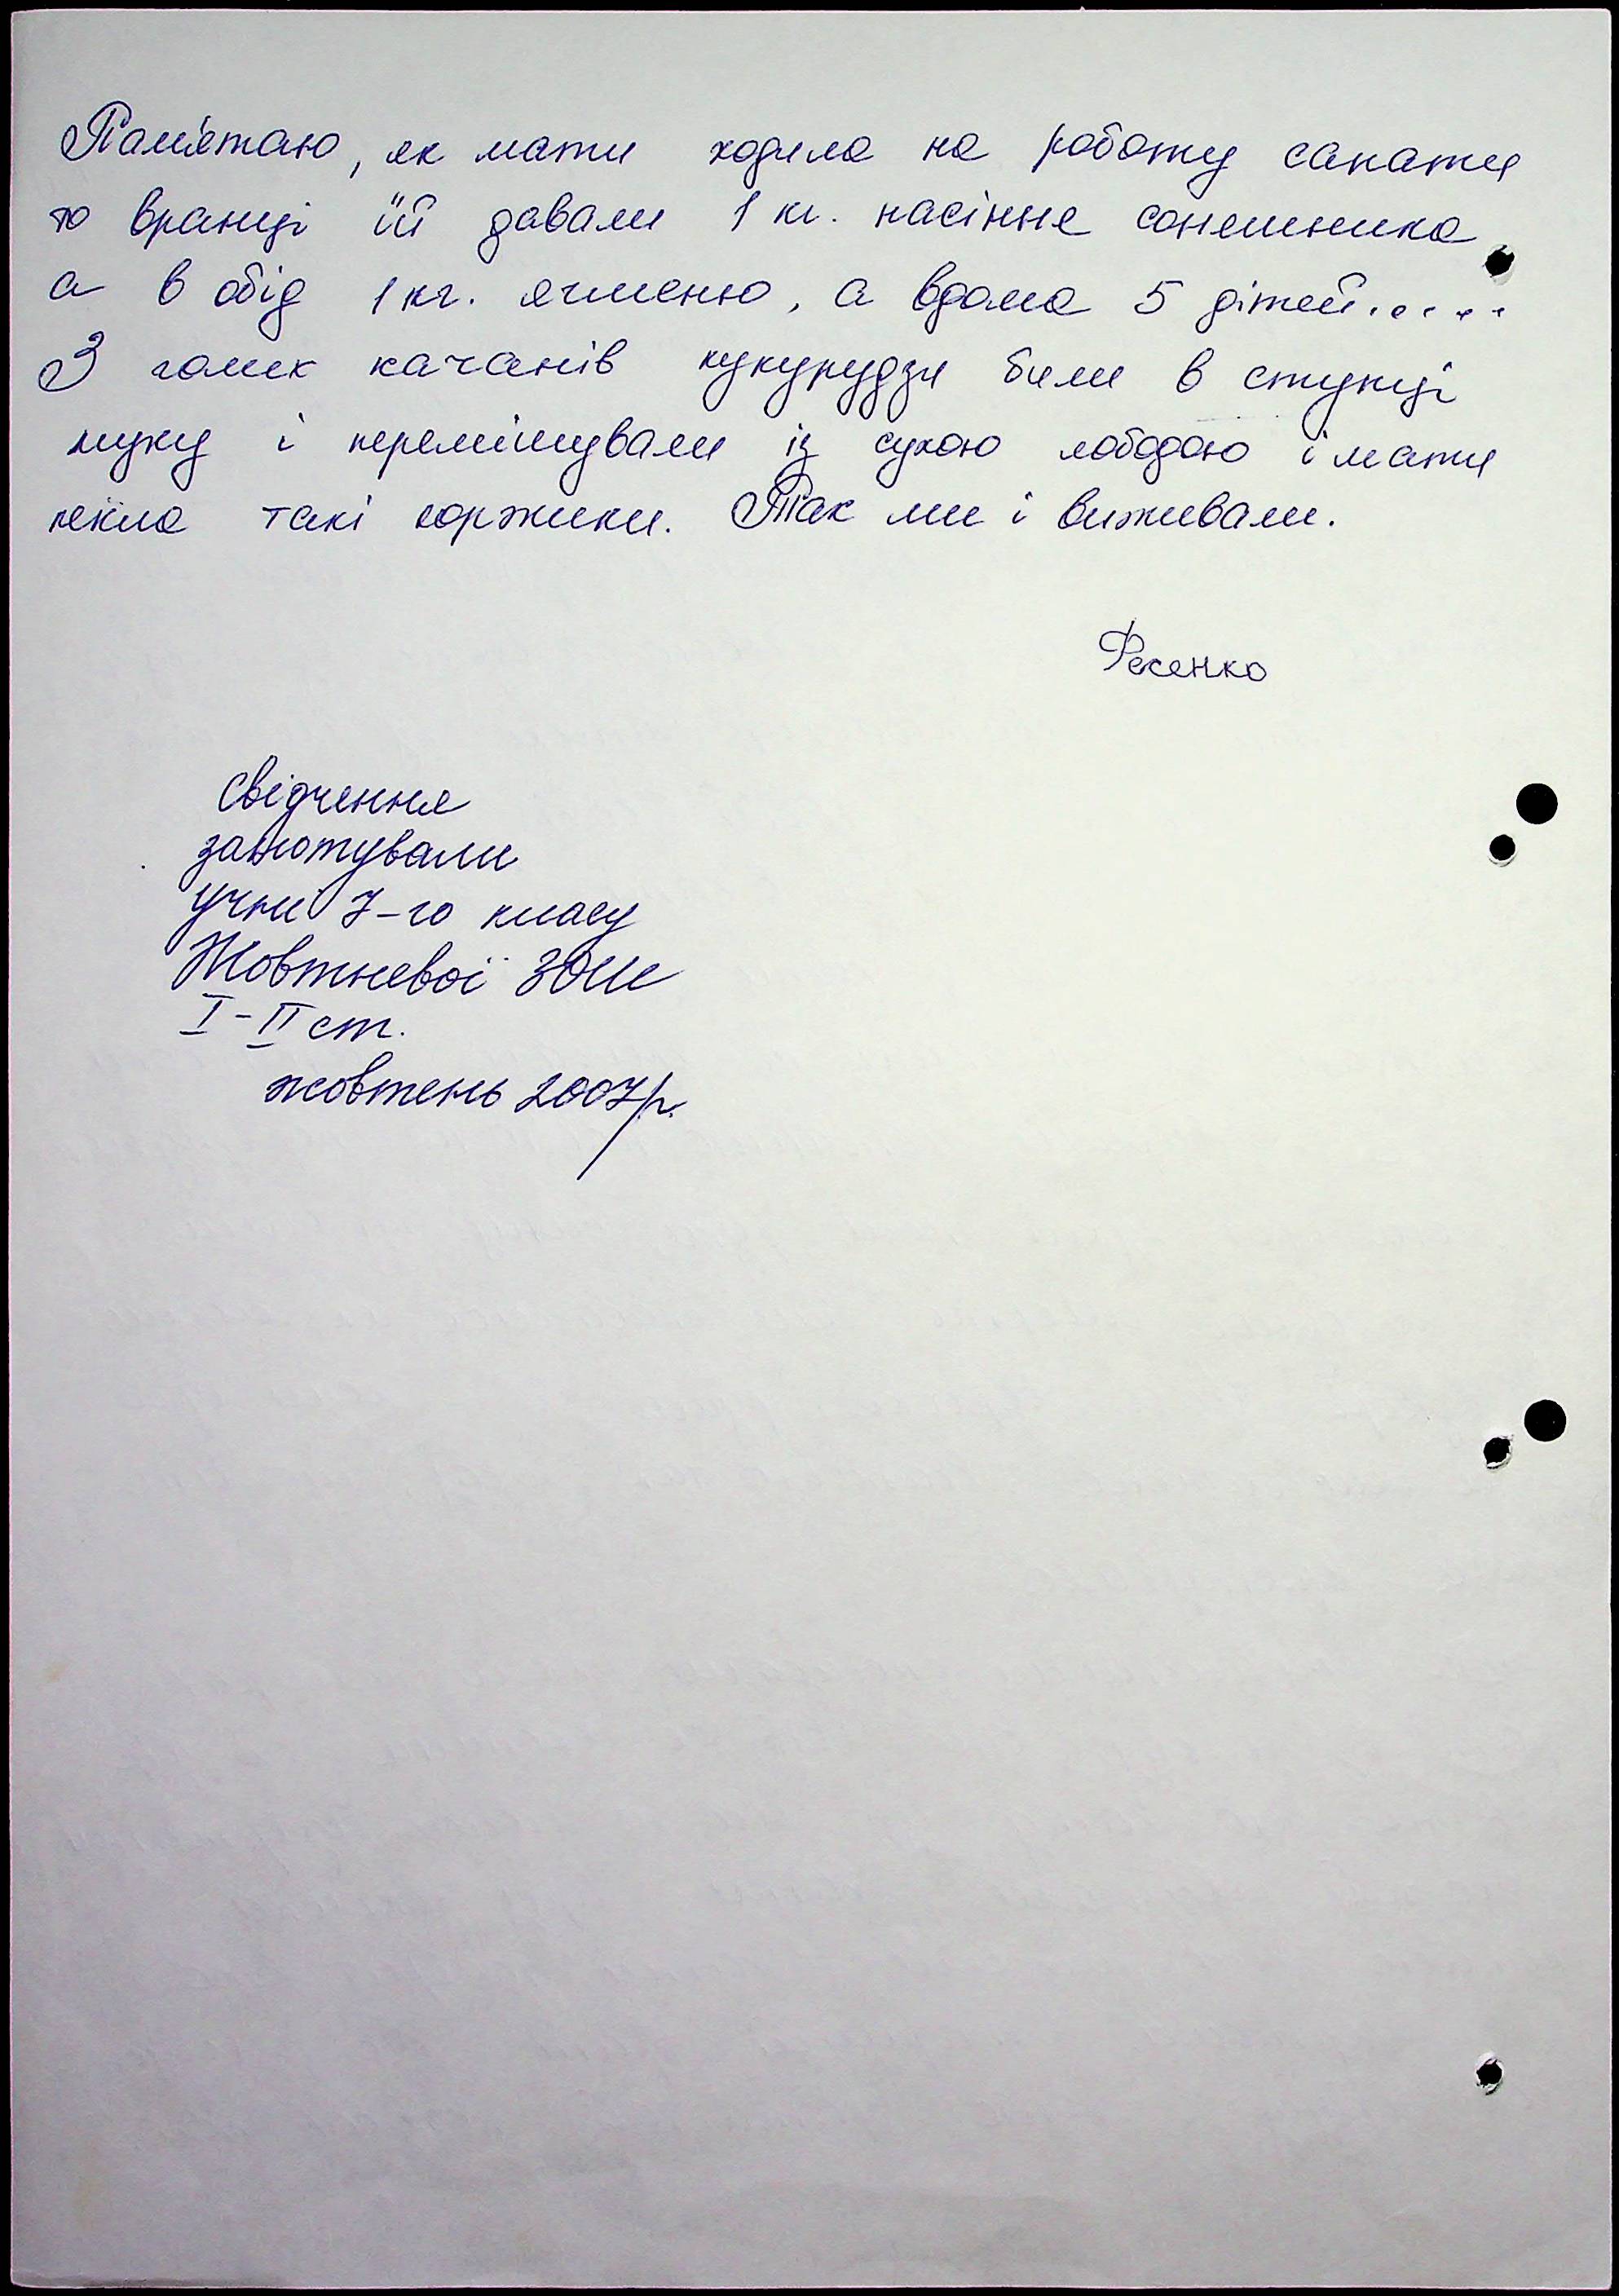 Пам'ятаю, як мати ходила на роботу сапати
то вранці їй давали 1 кг. насіння сонешника,
а в обід 1 кг. ячменю, а вдома 5 дітей.....
З голих качанів кукурудзи били в ступці
муку і перемішували із сухою лободою і мати
пекла такі коржики. Так ми і виживали.
Фесенко
Свідчення
занотували
учні 7-го класу
Жовтневої ЗОШ
I-II ст.
жовтень 2007р.